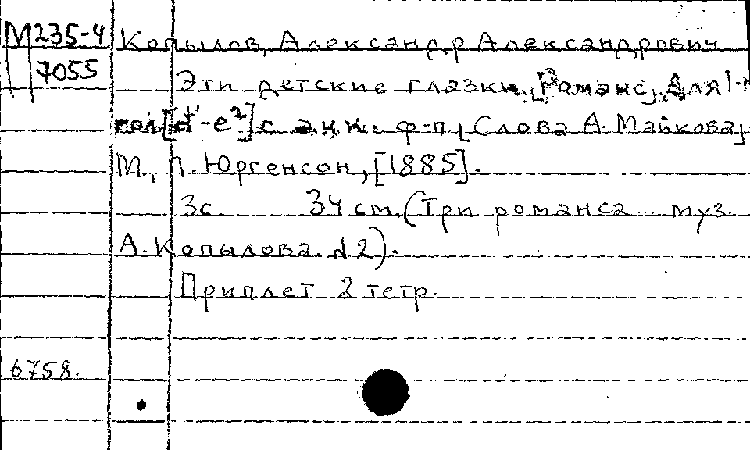 М235-4 Копылов, Александр Александрович
7055 Эти детские глазки. [Романс]. Для 1-г
гол [d¹-e²] с акк. ф-п. [Слова А. Майкова]
М., П. Юргенсон, [1885].
3с. 34 см. (Три романса муз.
А. Копылова. №2).
Приплет 2 тетр.
6758.